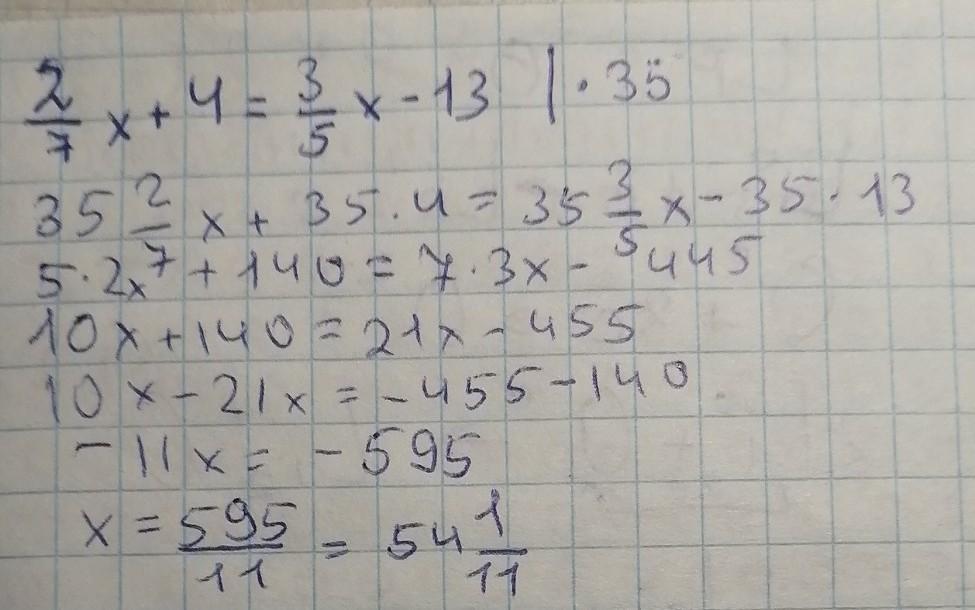 2/7 x + 4 = 3/5 x - 13 | · 35
35 2/7 x + 35 · 4 = 35 3/5 x - 35 · 13
5 · 2x + 140 = 7 · 3x - 445
10x + 140 = 21x - 455
10x - 21x = -455 - 140
-11x = -595
x = 595/11 = 54 1/11